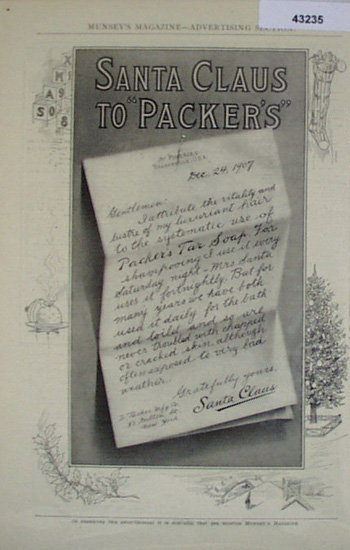 43235
MUNSEY'S MAGAZINE—ADVERTISING SECTION.
SANTA CLAUS
TO "PACKER'S"
Dec 24, 1907
Gentlemen:
I attribute the vitality and
lustre of my luxuriant hair
to the systematic use of
Packer's Tar Soap. For
shampooing I use it every
Saturday night - Mrs Santa
uses it fortnightly. But for
many years we have both
used it daily for the bath
and toilet and so are
never troubled with chapped
or cracked skin although
often exposed to very bad
weather.
Gratefully yours,
Santa Claus
Packer Mfg Co
81 Fulton St
New York
In answering this advertisement it is desirable that you mention Munsey's Magazine.